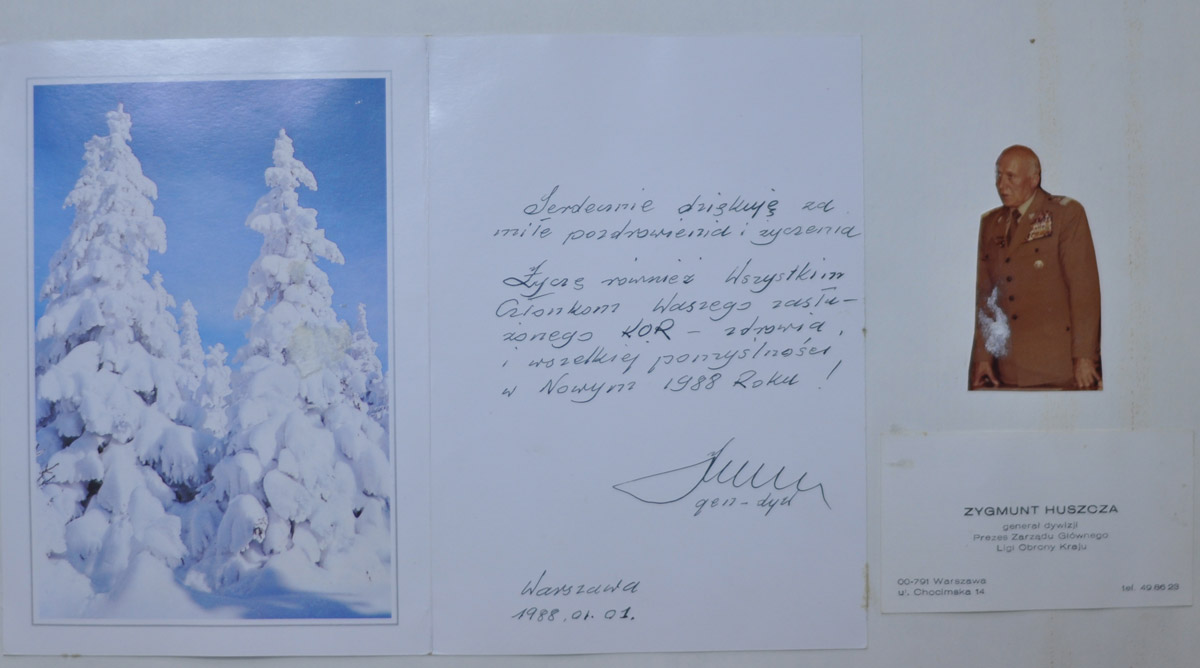 Serdecznie dziękuję za
miłe pozdrowienia i życzenia
Życzę również Wszystkim
Członkom Waszego zasłu-
żonego KOR - zdrowia,
i wszelkiej pomyślności
w Nowym 1988 Roku!
gen-dyw
Warszawa
1988.01.01.
ZYGMUNT HUSZCZA
generał dywizji
Prezes Zarządu Głównego
Ligi Obrony Kraju
00-791 Warszawa
ul. Chocimska 14
tel. 49 86 29